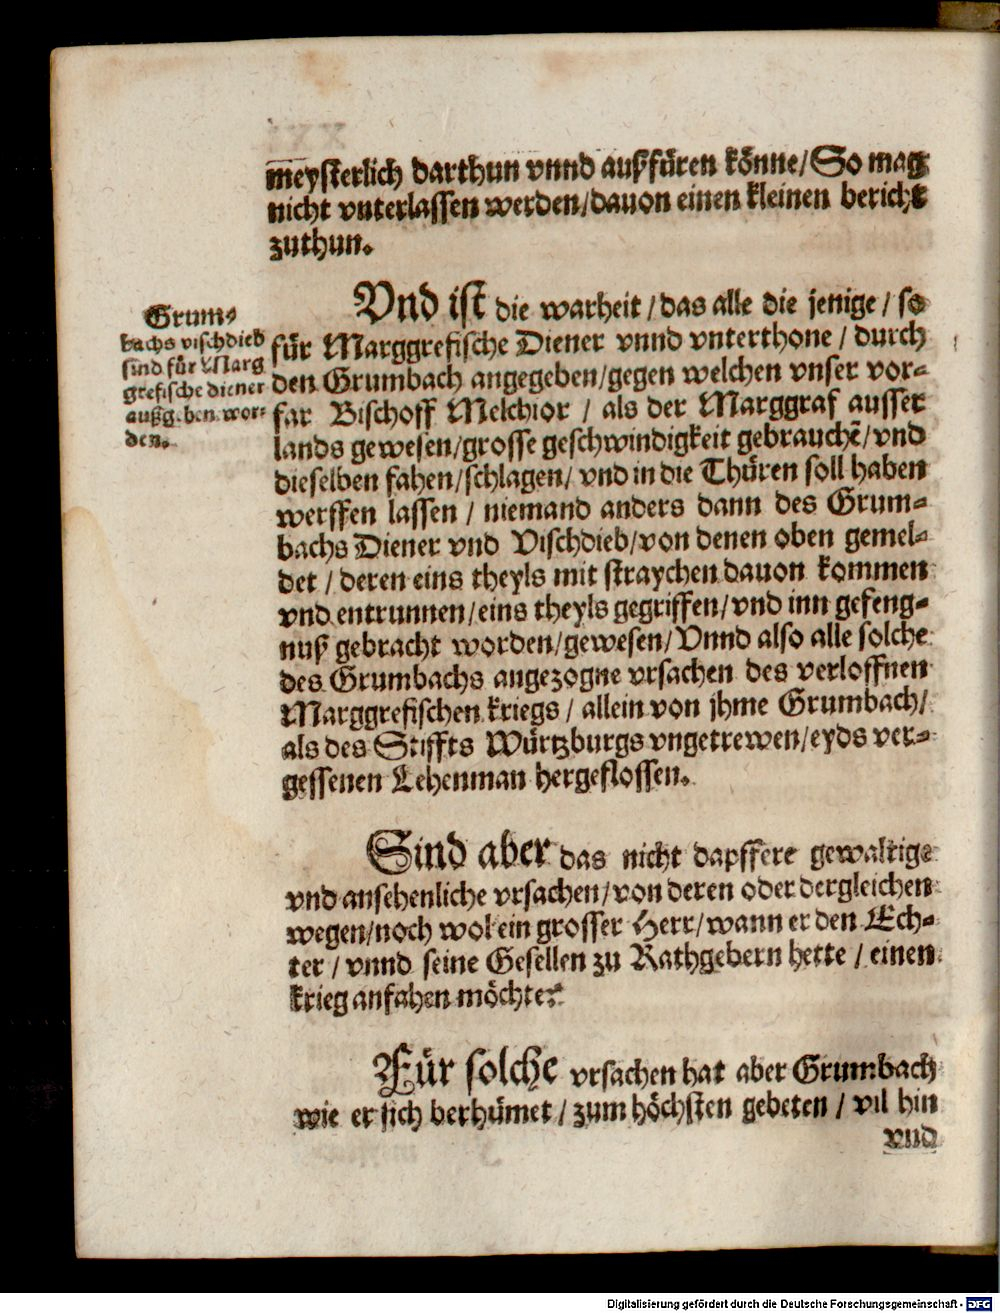 meysterlich darthun vnnd außfüren könne/ So mag
nicht vnterlassen werden/dauon einen kleinen bericht
zuthun.
Grum-
bachs vischdieb
sind für Marg
grefische diener
außgeben wor-
den.
Vnd ist die warheit / das alle die jenige / so
für Marggrefische Diener vnnd vnterthone / durch
den Grumbach angegeben/gegen welchen vnser vor-
far Bischoff Melchior / als der Marggraf ausser
lands gewesen/grosse geschwindigkeit gebrauchẽ/vnd
dieselben fahen/schlagen/ vnd in die Thüren soll haben
werffen lassen / niemand anders dann des Grum-
bachs Diener vnd Vischdieb/von denen oben gemel-
det / deren eins theyls mit straychen dauon kommen
vnd entrunnen/eins theyls gegriffen/vnd inn gefeng-
nuß gebracht worden/gewesen/ Vnnd also alle solche
des Grumbachs angezogne vrsachen des verloffnen
Marggrefischen kriegs / allein von jhme Grumbach/
als des Stiffts Würtzburgs vngetrewen/eyds ver-
gessenen Lehenman hergeflossen.
Sind aber das nicht dapffere gewaltige
vnd ansehenliche vrsachen/von deren oder dergleichen
wegen/noch wol ein grosser Herr/wann er den Ech-
ter / vnnd seine Gesellen zu Rathgebern hette / einen
krieg anfahen möchte?
Für solche vrsachen hat aber Grumbach
wie er sich berhümet / zum höchsten gebeten / vil hin
vnd
Digitalisierung gefördert durch die Deutsche Forschungsgemeinschaft - DFG